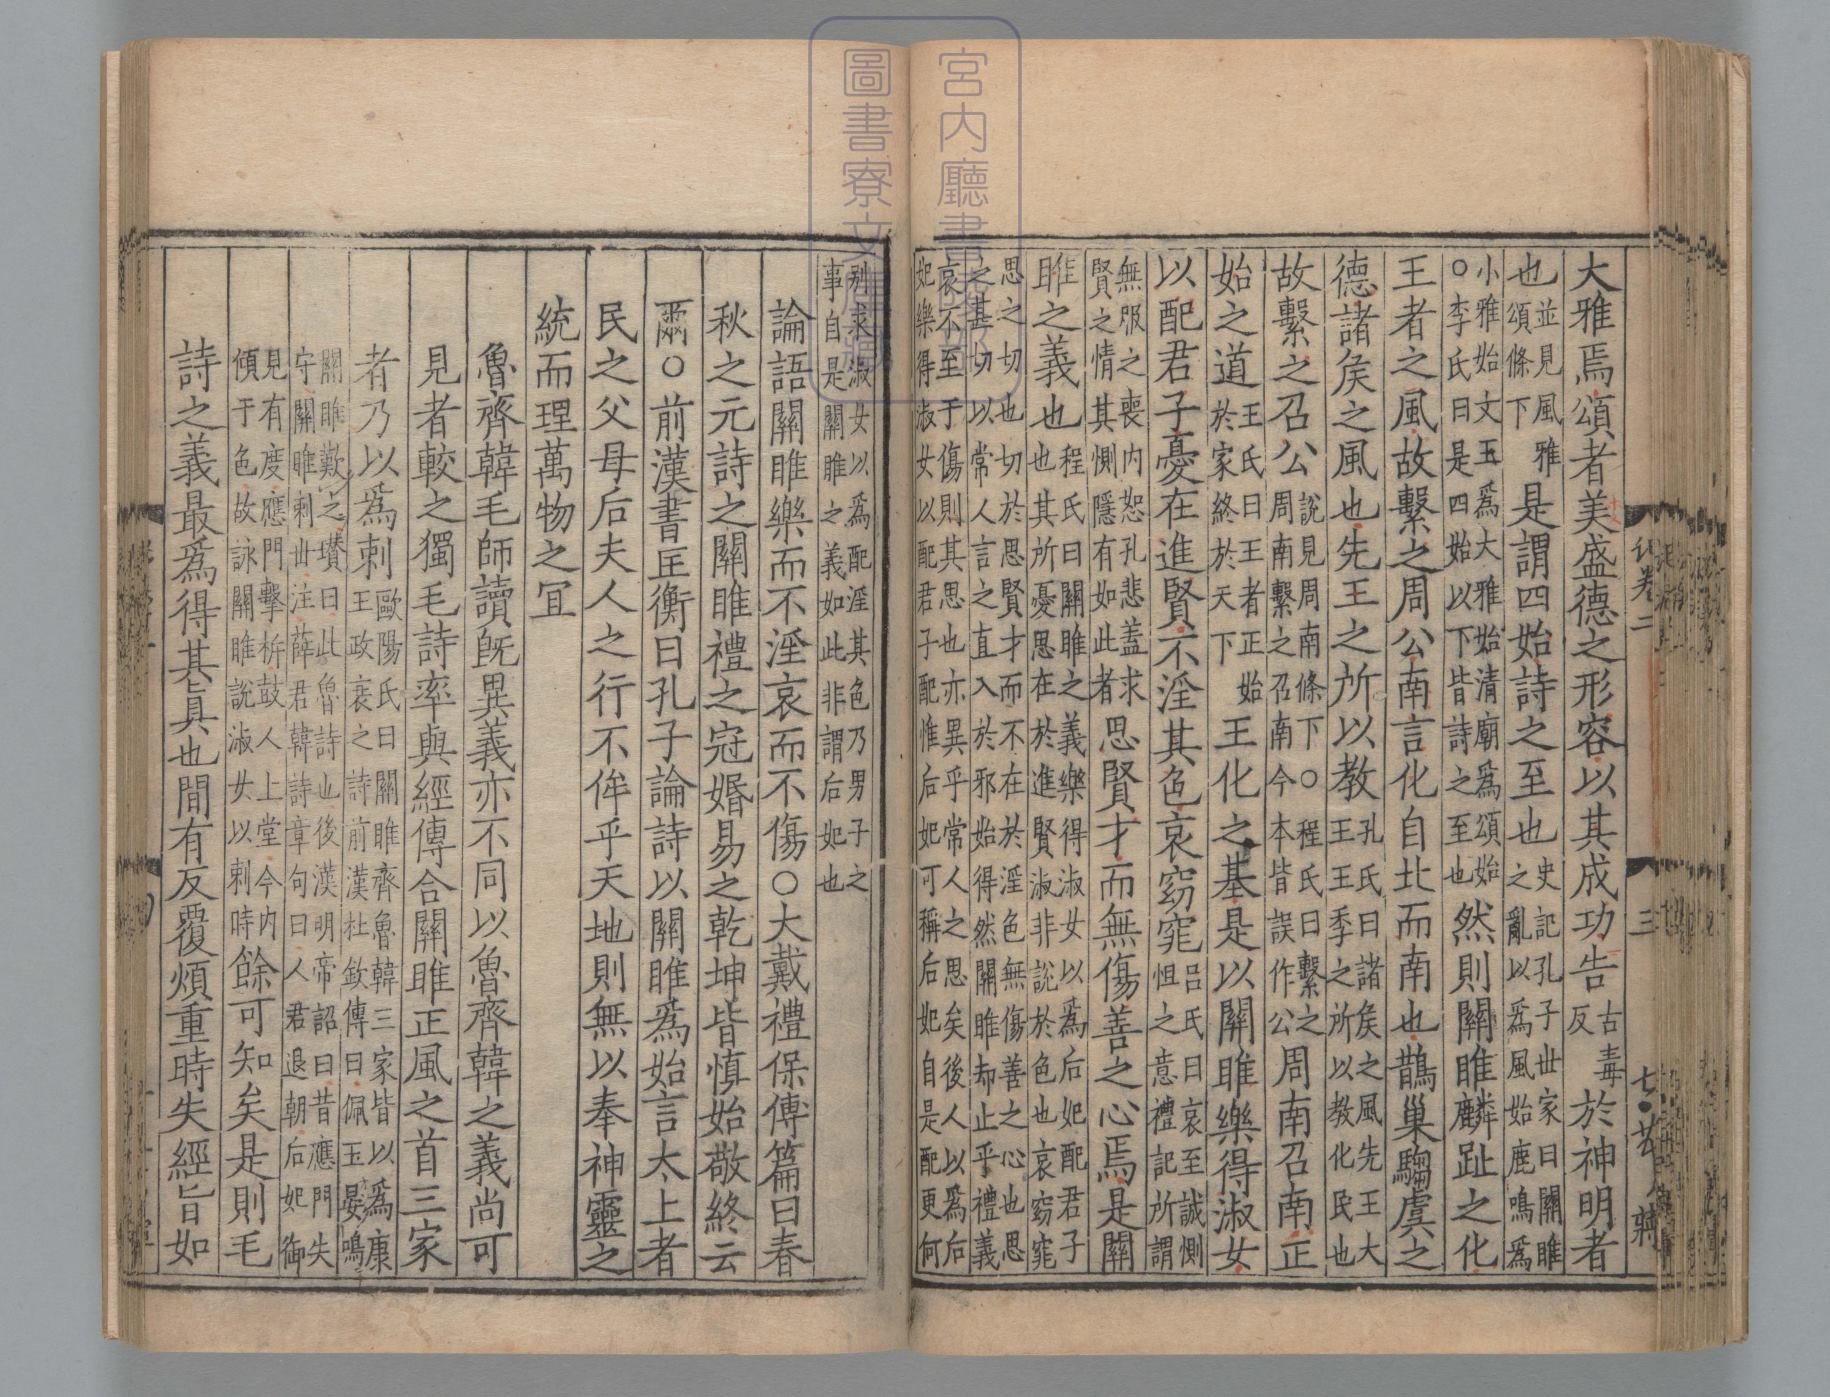 大雅焉頌者美盛德之形容以其成功告古毒反於神明者
也並見風雅頌條下是謂四始詩之至也史記孔子世家曰關雎之亂以爲風始鹿鳴爲
小雅始文王爲大雅始清廟爲頌始○李氏曰是四始以下皆詩之至也然則關雎麟趾之化
王者之風故繫之周公南言化自北而南也鵲巢騶虞之
德諸侯之風也先王之所以教王孔氏曰諸侯之風先王大王王季之所以教化民也
故繫之召公說見周南條下○程氏曰繫之周南繫之召南今本皆誤作公周南召南正
始之道王氏曰王者正始於家終於天下王化之基是以關雎樂得淑女
以配君子憂在進賢不淫其色哀窈窕呂氏曰哀至誠惻怛之意禮記所謂
無服之喪內恕孔悲蓋求賢之情其惻隱有如此者思賢才而無傷善之心焉是關
雎之義也程氏曰關雎之義樂得淑女以爲后妃配君子也其所憂思在於進賢淑非說於色也哀窈窕
思之切也切於思賢才而不在於淫色無傷善之心也思之甚切以常人言之直入於邪始得然關雎却止乎禮義
哀不至于傷則其思也亦異乎常人之思矣後人以爲后妃樂得淑女以配君子配惟后妃可稱后妃自是配更何
別求淑女以爲配淫其色乃男子之事自是關雎之義如此非謂后妃也
論語關雎樂而不淫哀而不傷○大戴禮保傅篇曰春
秋之元詩之關雎禮之冠婚易之乾坤皆慎始敬終云
爾○前漢書匡衡曰孔子論詩以關雎爲始言太上者
民之父母后夫人之行不侔乎天地則無以奉神靈之
統而理萬物之宜
魯齊韓毛師讀旣異義亦不同以魯齊韓之義尚可
見者較之獨毛詩率與經傳合關雎正風之首三家
者乃以爲刺歐陽氏曰關雎齊魯韓三家皆以爲康王政衰之詩前漢杜欽傳曰佩玉晏鳴
關雎歎之瓚曰此魯詩也後漢明帝詔曰昔應門失守關雎刺世注薛君韓詩章句曰人君退朝后妃御
見有度應門擊柝鼓人上堂今內傾于色故詠關雎說淑女以刺時餘可知矣是則毛
詩之義最爲得其眞也間有反覆煩重時失經旨如
宮內廳書陵部
圖書寮文庫藏